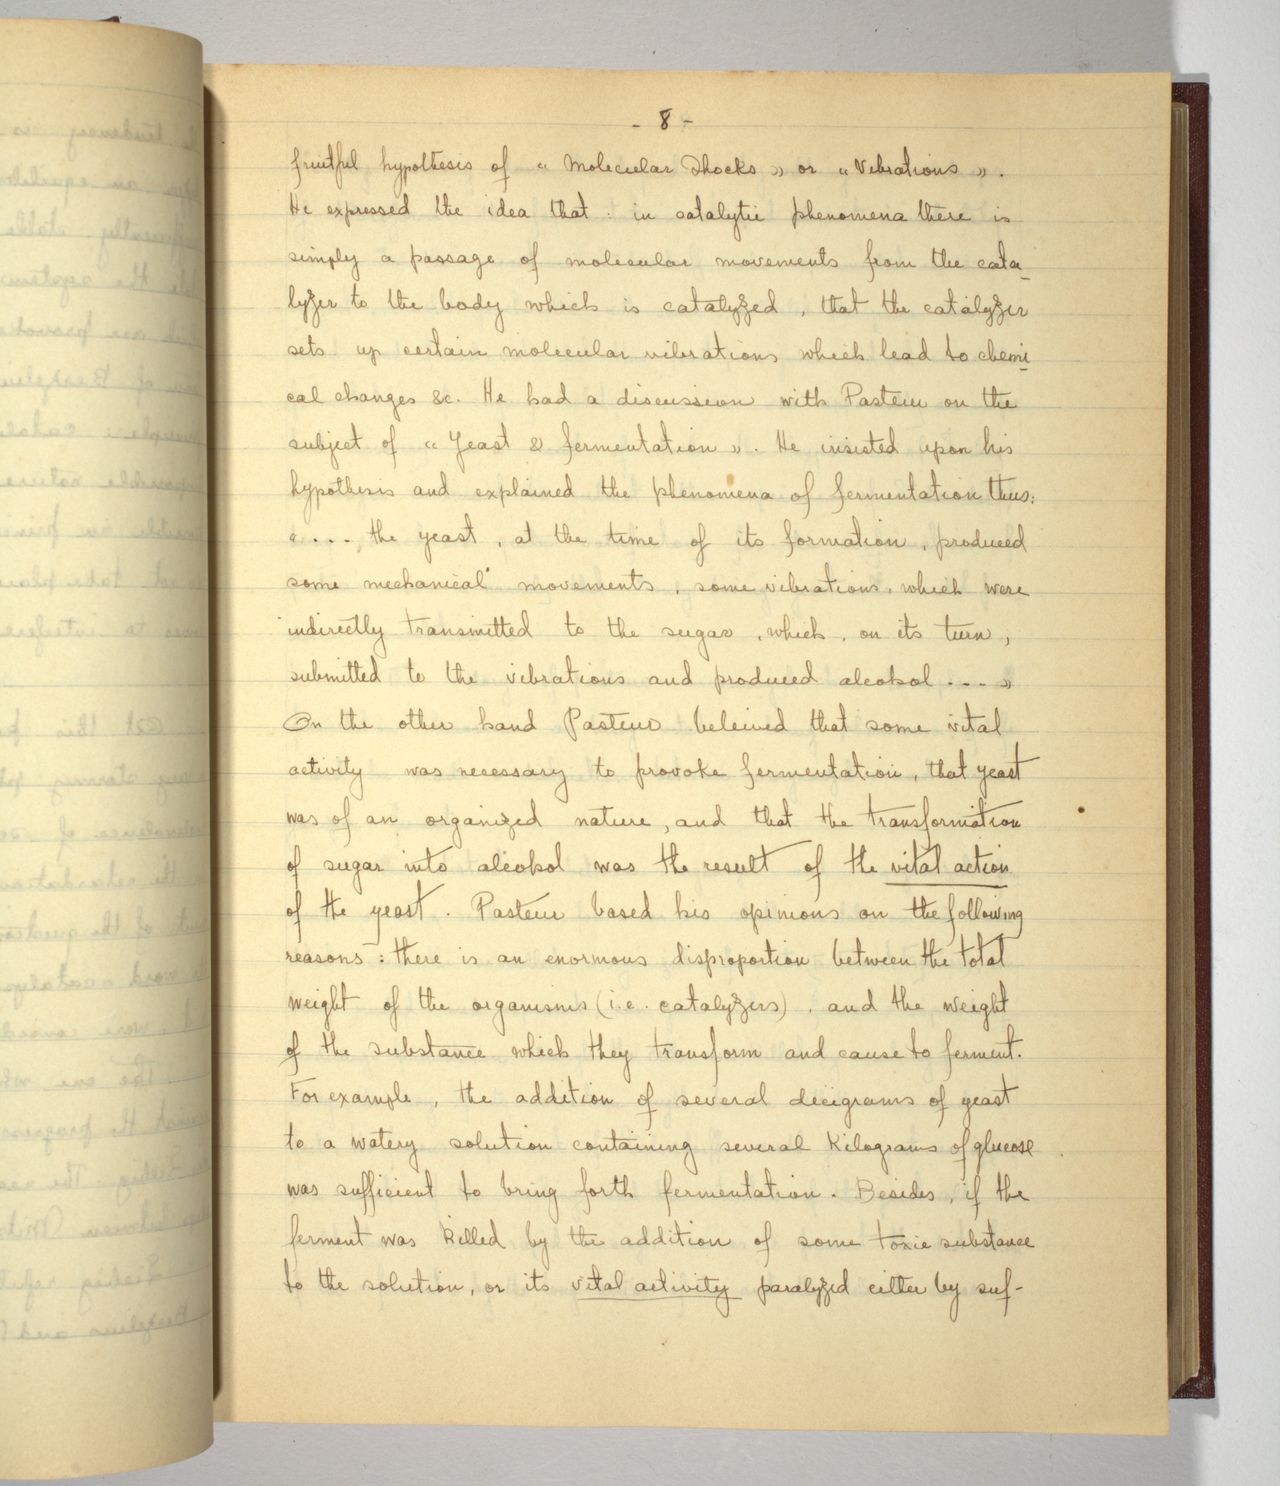 - 8 -
fruitful hypothesis of « Molecular Shocks » or « Vibrations ».
He expressed the idea that : in catalytic phenomena there is
simply a passage of molecular movements from the cata-
lyzer to the body which is catalyzed, that the catalyzer
sets up certain molecular vibrations which lead to chemi-
cal changes &c. He had a discussion with Pasteur on the
subject of « Yeast & fermentation ». He insisted upon his
hypothesis and explained the phenomena of fermentation thus:
« ... the yeast, at the time of its formation, produced
some mechanical movements, some vibrations, which were
indirectly transmitted to the sugar, which, on its turn,
submitted to the vibrations and produced alcohol ... »
On the other hand Pasteur beleived that some vital
activity was necessary to provoke fermentation, that yeast
was of an organized nature, and that the transformation
of sugar into alcohol was the result of the vital action
of the yeast. Pasteur based his opinions on the following
reasons : there is an enormous disproportion between the total
weight of the organisms (i.e. catalyzers), and the weight
of the substance which they transform and cause to ferment.
For example, the addition of several decigrams of yeast
to a watery solution containing several Kilograms of glucose
was sufficient to bring forth fermentation. Besides, if the
ferment was killed by the addition of some toxic substance
to the solution, or its vital activity paralyzed either by suf-